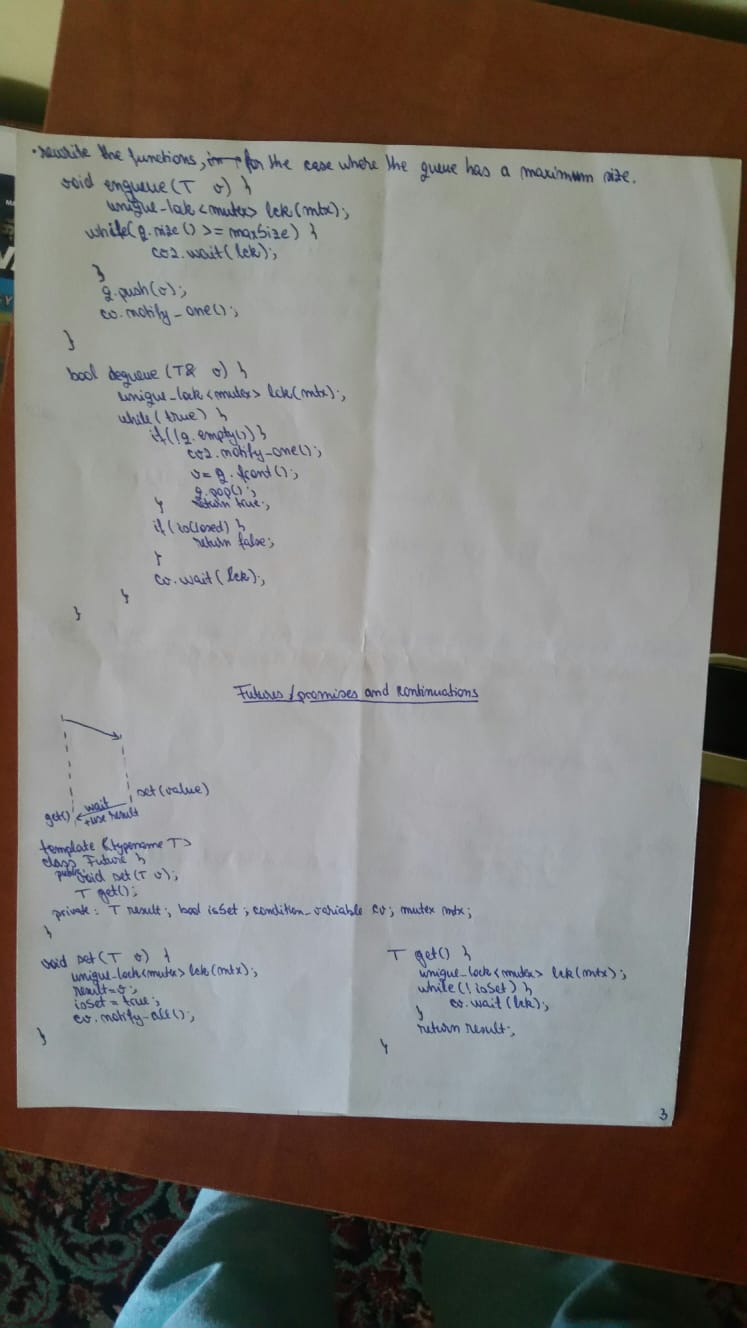 • rewrite the functions, for the case where the queue has a maximum size.
void enqueue(T v) {
unique_lock <mutex> lck(mtx);
while(q.size() >= maxSize) {
cv2.wait(lck);
}
q.push(v);
cv.notify_one();
}
bool dequeue (T& v) {
unique_lock <mutex> lck(mtx);
while(true) {
if(!q.empty()) {
cv2.notify_one();
v = q.front();
q.pop();
} return true;
if (isClosed) {
return false;
}
cv.wait(lck);
}
}
Futures/promises and continuations
set(value)
wait
get() + use result
template <typename T>
class Future {
public: void set(T v);
T get();
private: T result; bool isSet; condition_variable cv; mutex mtx;
}
void set(T v) {
unique_lock<mutex> lck(mtx);
result=v;
isSet = true;
cv.notify_all();
}
T get() {
unique_lock<mutex> lck(mtx);
while(!isSet) {
cv.wait(lck);
}
return result;
}
3